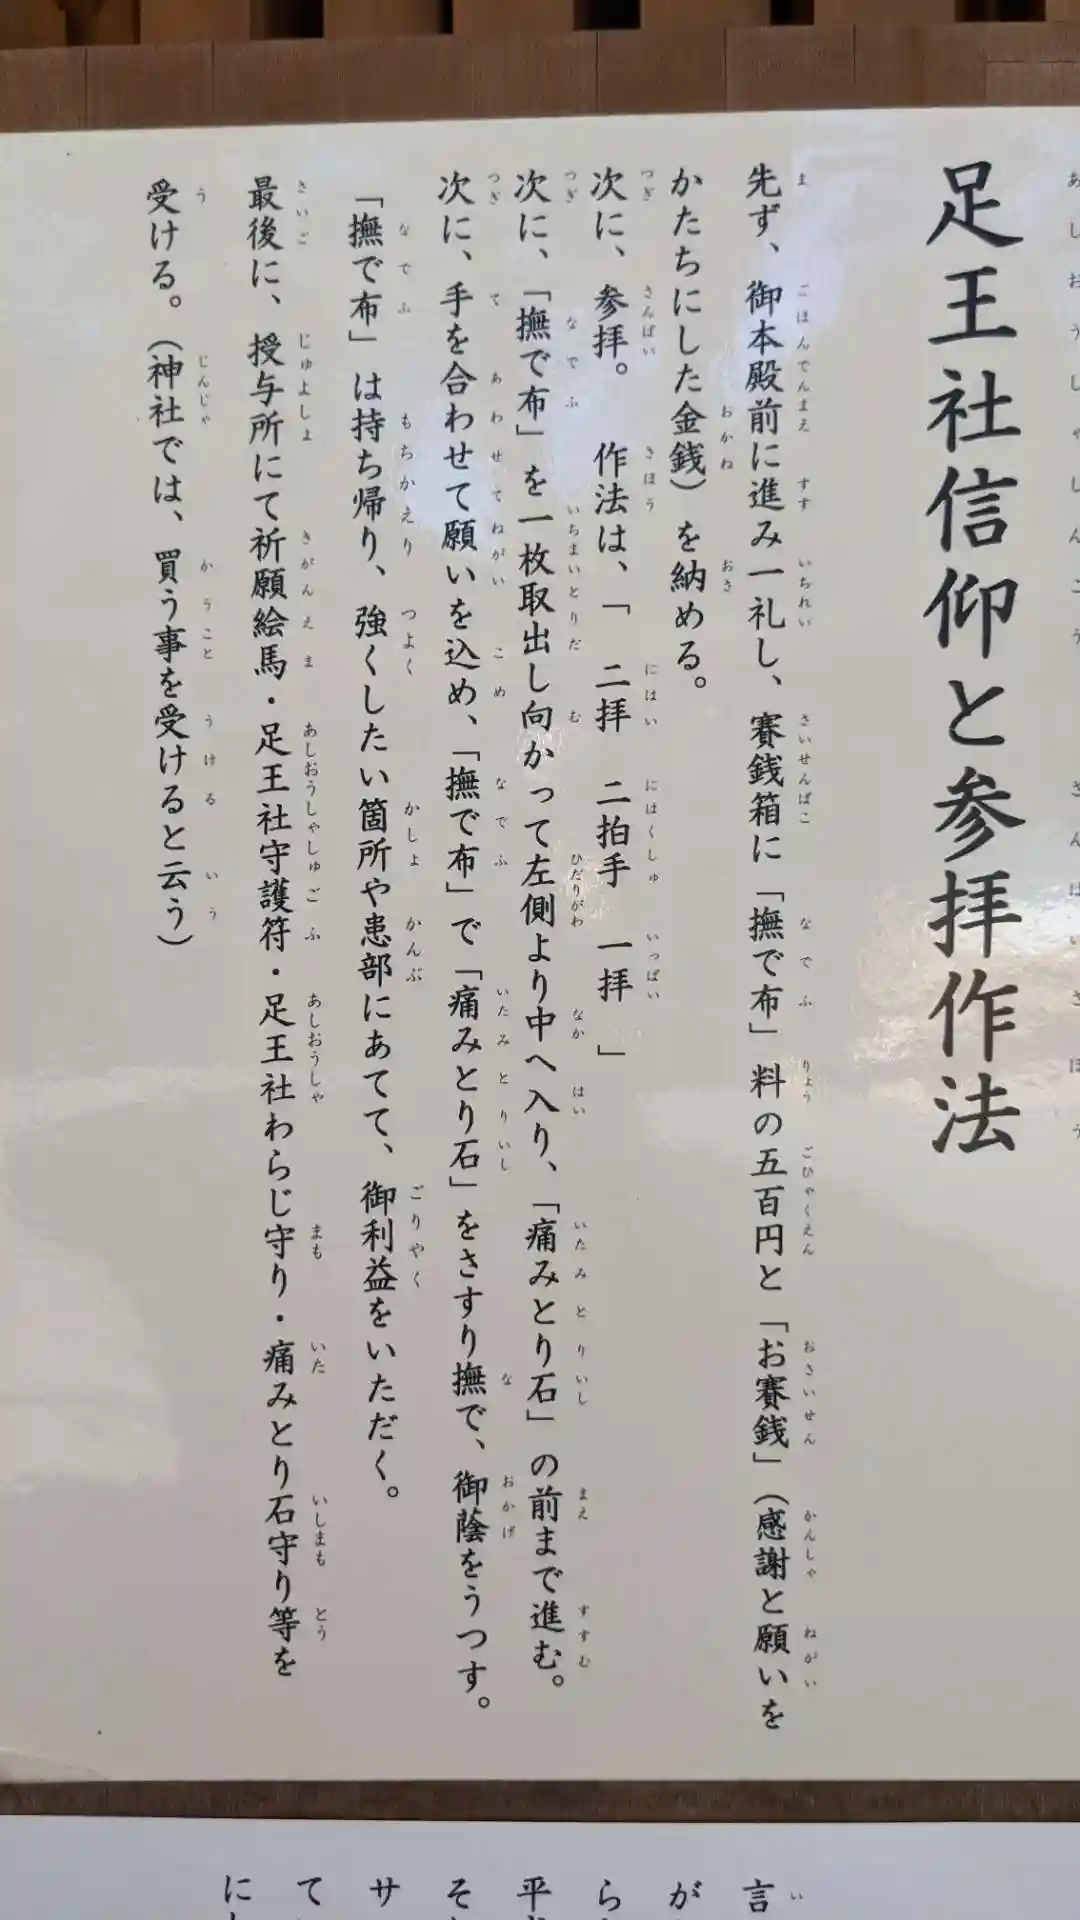 足王社信仰と参拝作法
先ず、御本殿前に進み一礼し、賽銭箱に「撫で布」料の五百円と「お賽銭」（感謝と願いを
かたちにした金銭）を納める。
次に、参拝。　作法は、「　二拝　二拍手　一拝　」
次に、「撫で布」を一枚取出し向かって左側より中へ入り、「痛みとり石」の前まで進む。
次に、手を合わせて願いを込め、「撫で布」で「痛みとり石」をさすり撫で、御蔭をうつす。
「撫で布」は持ち帰り、強くしたい箇所や患部にあてて、御利益をいただく。
最後に、授与所にて祈願絵馬・足王社守護符・足王社わらじ守り・痛みとり石守り等を
受ける。（神社では、買う事を受けると云う）
言
が
ら
平
そ
サ
て
に